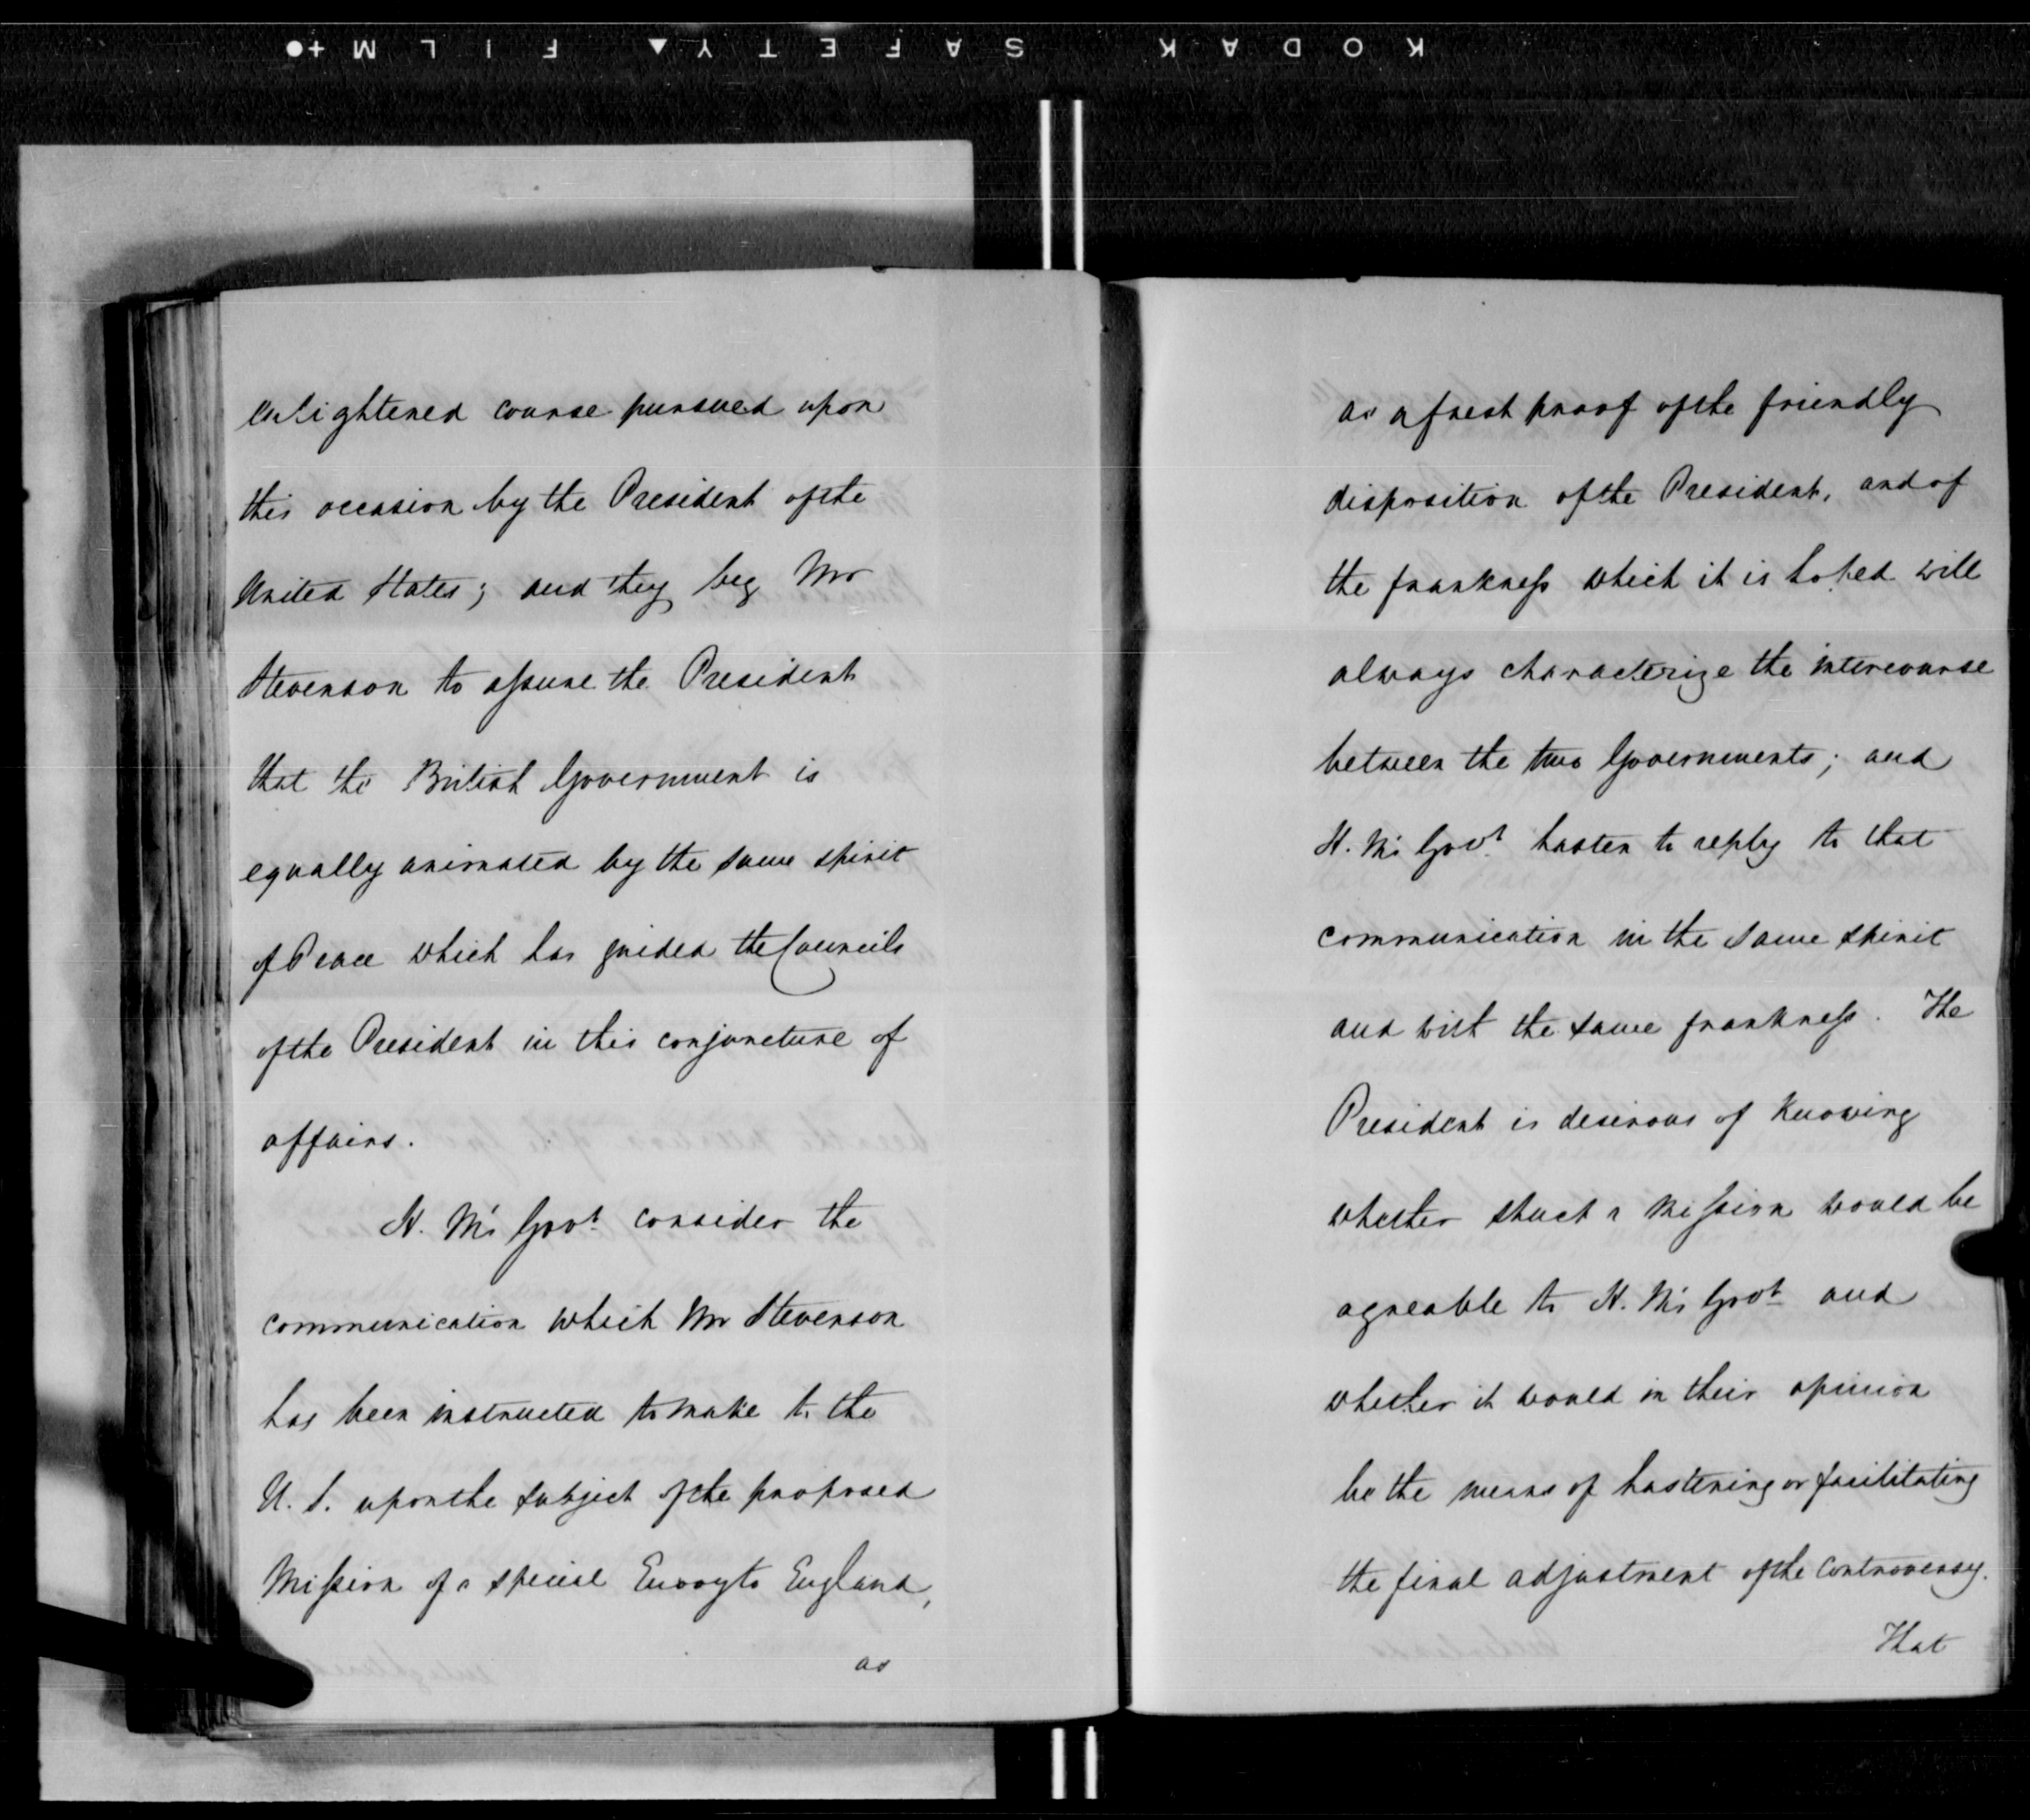 KODAK SAFETY FILM
enlightened course pursued upon
this occasion by the President of the
United States; and they beg Mr
Stevenson to assure the President
that the British Government is
equally animated by the same spirit
of Peace which has guided the Councils
of the President in this conjuncture of
affairs.
H. M's Govt. consider the
communication which Mr Stevenson
has been instructed to make to the
U. S. upon the subject of the proposed
Mission of a special Envoy to England,
as
as a fresh proof of the friendly
disposition of the President, and of
the frankness which it is hoped will
always characterize the intercourse
between the two Governments; and
H. M's Govt. hasten to reply to that
communication in the same spirit
and with the same frankness. The
President is desirous of knowing
whether such a Mission would be
agreable to H. M's Govt. and
whether it would in their opinion
be the means of hastening or facilitating
the final adjustment of the controversy.
That